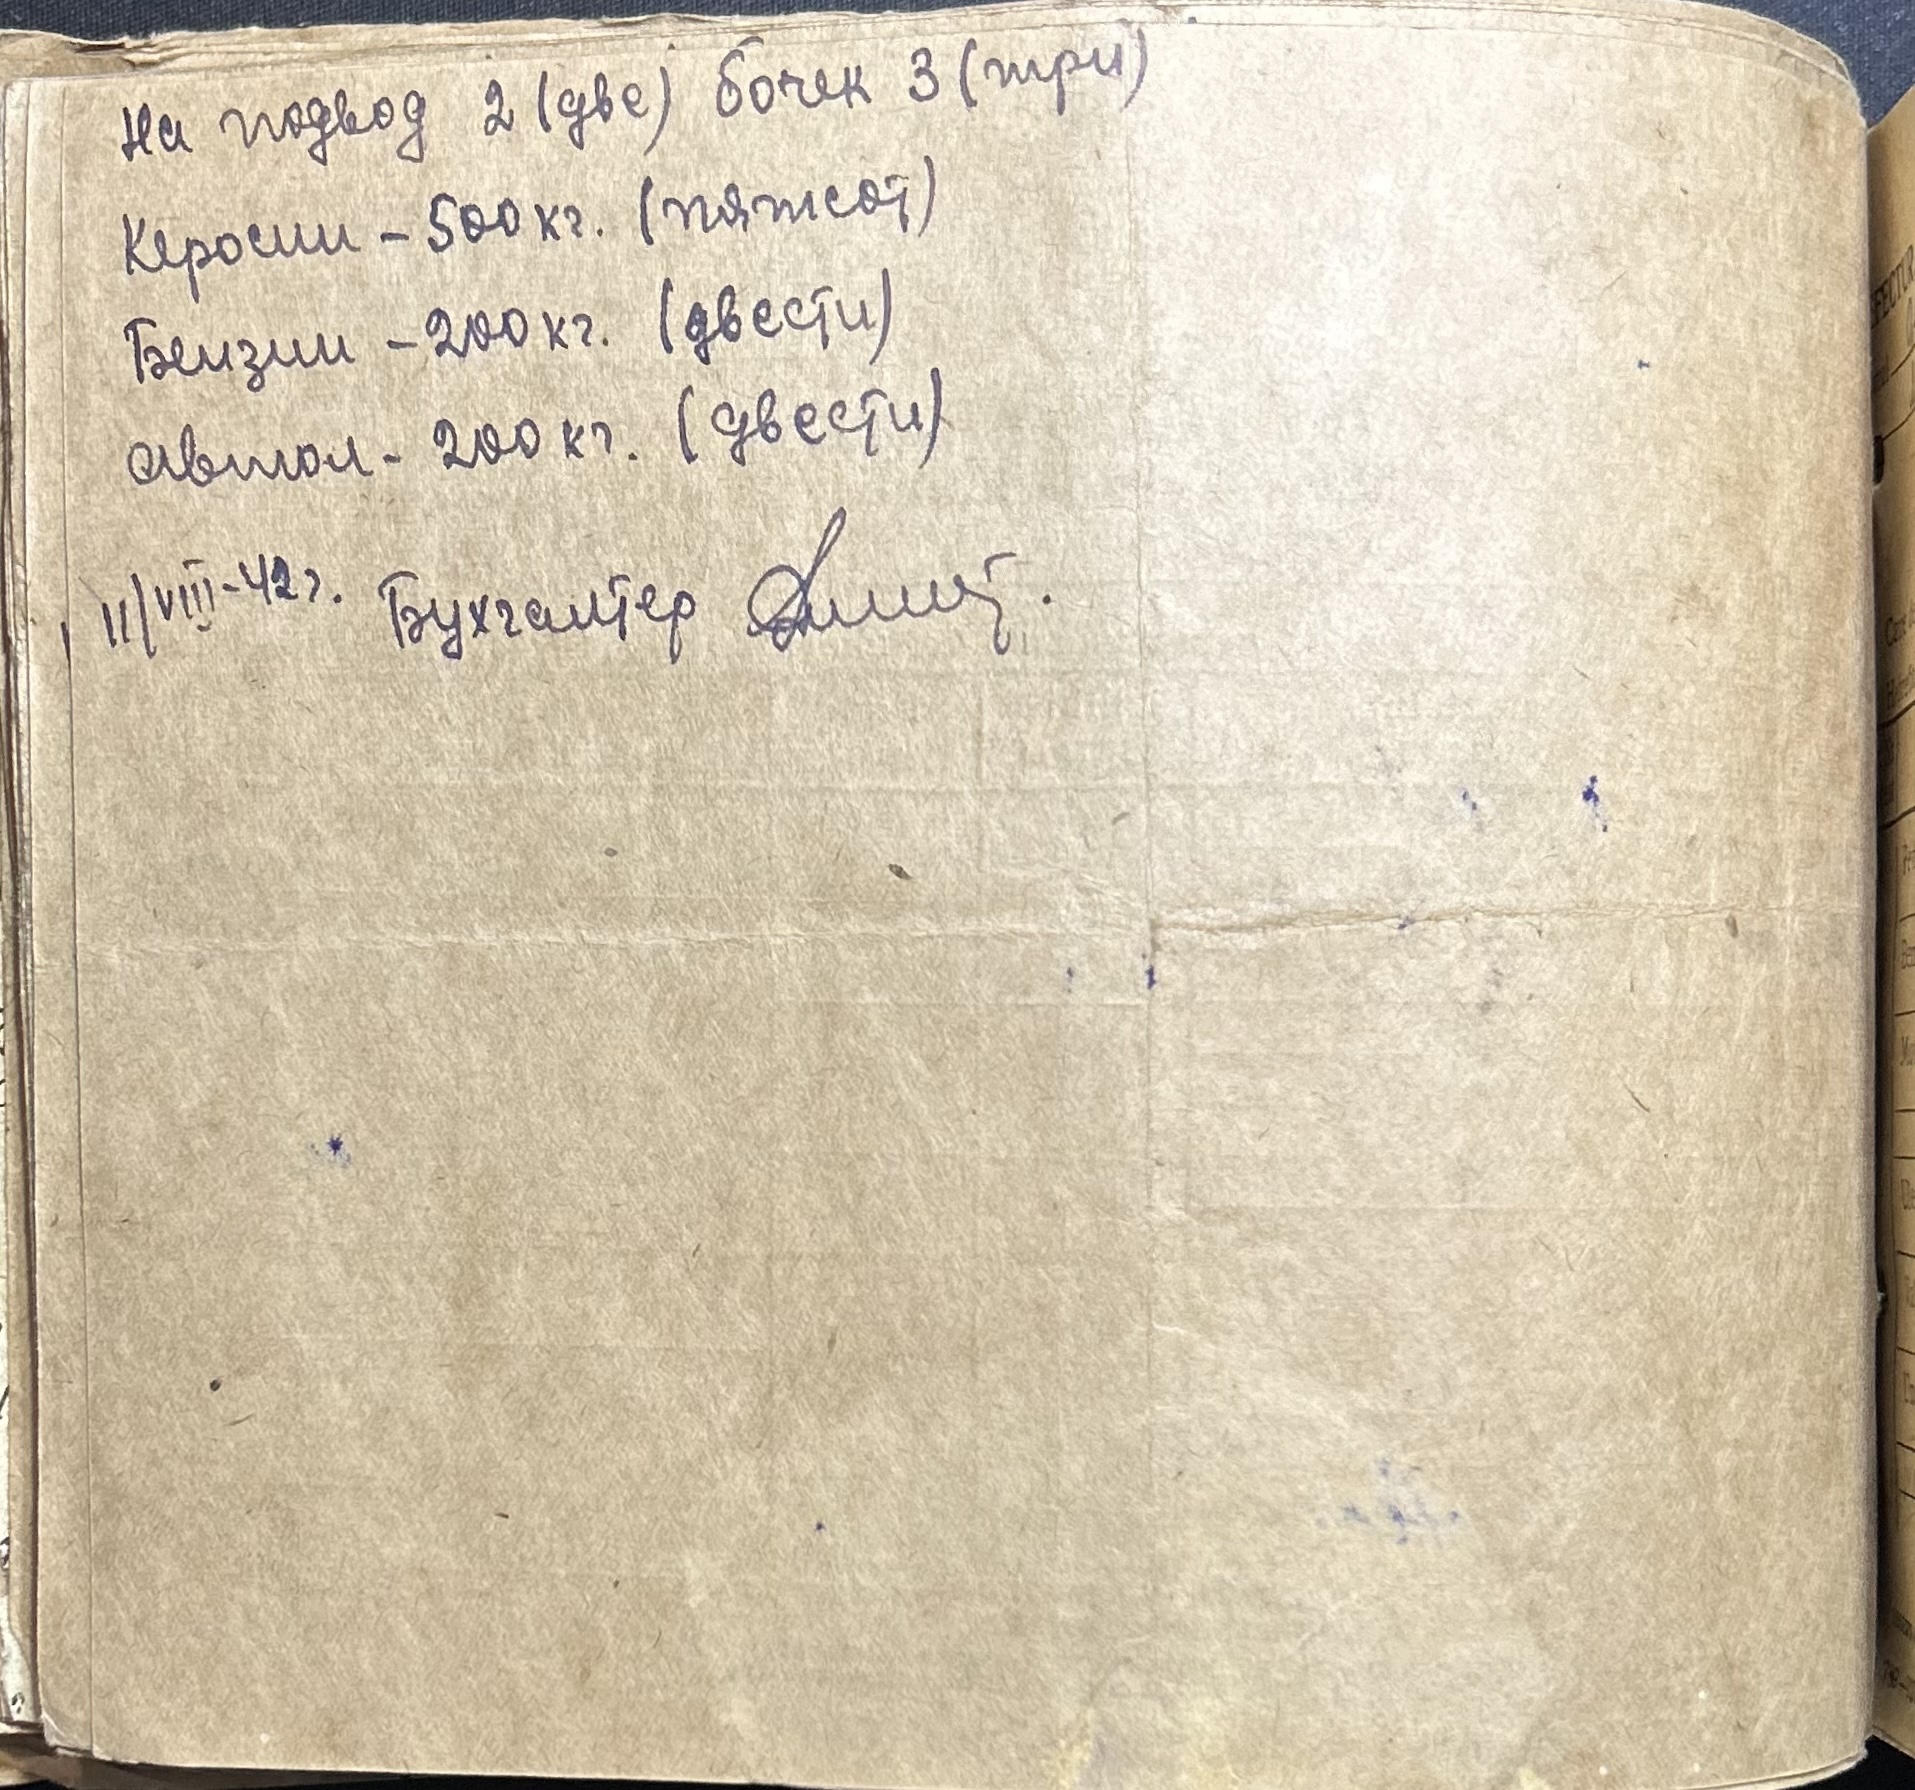 На подвод 2 (две) бочек 3 (три)
Керосин - 500 кг. (пятсот)
Бензин - 200 кг. (двести)
Автол - 200 кг. (двести)
11/VIII-42 г. Бухгалтер